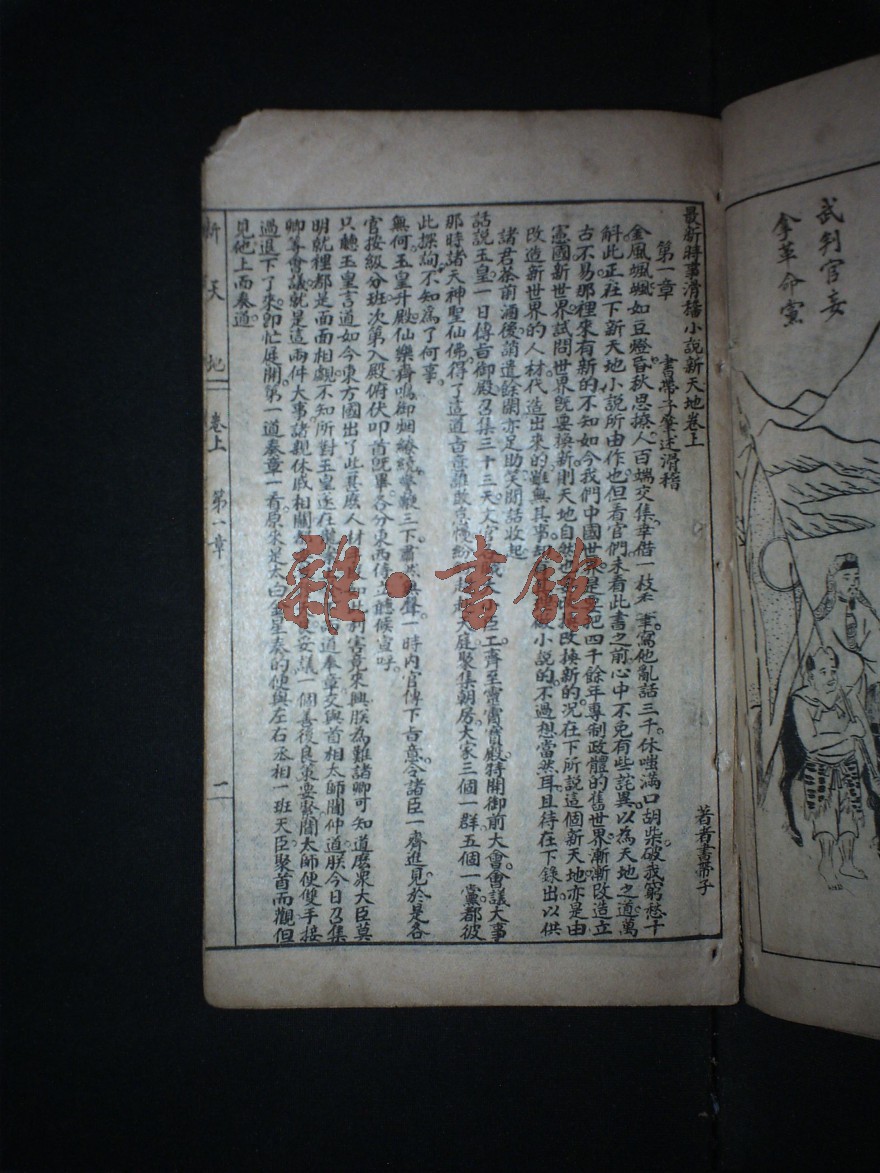 武判官妄
拿革命黨
最新時事滑稽小說新天地卷上
著者書帶子
第一章
書帶子筆述滑稽
金風颯颯如豆燈昏秋思撩人百端交集幸借一枝禿筆寫他亂話三千休嗤滿口胡柴破我窮愁十
斛此正在下新天地小說所由作也但看官們未看此書之前心中不免有些詫異以為天地之道萬
古不易那裡來有新的不知如今我們中國世界是要把四千餘年專制政體的舊世界漸漸改造立
憲國新世界試問世界既要換新則天地自然也 改換新的况在下所說這個新天地亦是由
改造新世界的人材代造出來的雖無其事 小說的不過想當然耳且待在下錄出以供
諸君茶前酒後消遣餘閑亦足助笑閒話收起
話說玉皇一日傳旨御殿召集三十三天文官 臣工齊至靈霄寶殿特開御前大會會議大事
那時諸天神聖仙佛得了這道旨意誰敢怠慢紛 天庭聚集朝房大家三個一群五個一黨都彼
此探詢不知為了何事
無何玉皇升殿仙樂齊鳴御烟繚繞擊鞭三下肅 聲一時內官傳下旨意令諸臣一齊進見於是各
官按級分班次第入殿俯伏叩首既畢各分東西侍立聽候宣呼
只聽玉皇言道如今東方國出了些甚麼人材 如此利害竟來與朕為難諸卿可知道麼衆大臣莫
明就裡都是面面相覷不知所對玉皇遂在 道奉章交與首相太師聞仲道朕今日召集
卿等會議就是這兩件大事諸親休戚相關 妥議一個善後良策要緊聞太師便雙手接
過退下了來卽忙展開第一道奏章一看原來是太白金星奏的便與左右丞相一班天臣聚首而觀但
見他上面奏道
新天地
卷上
第一章
二
雜·書館